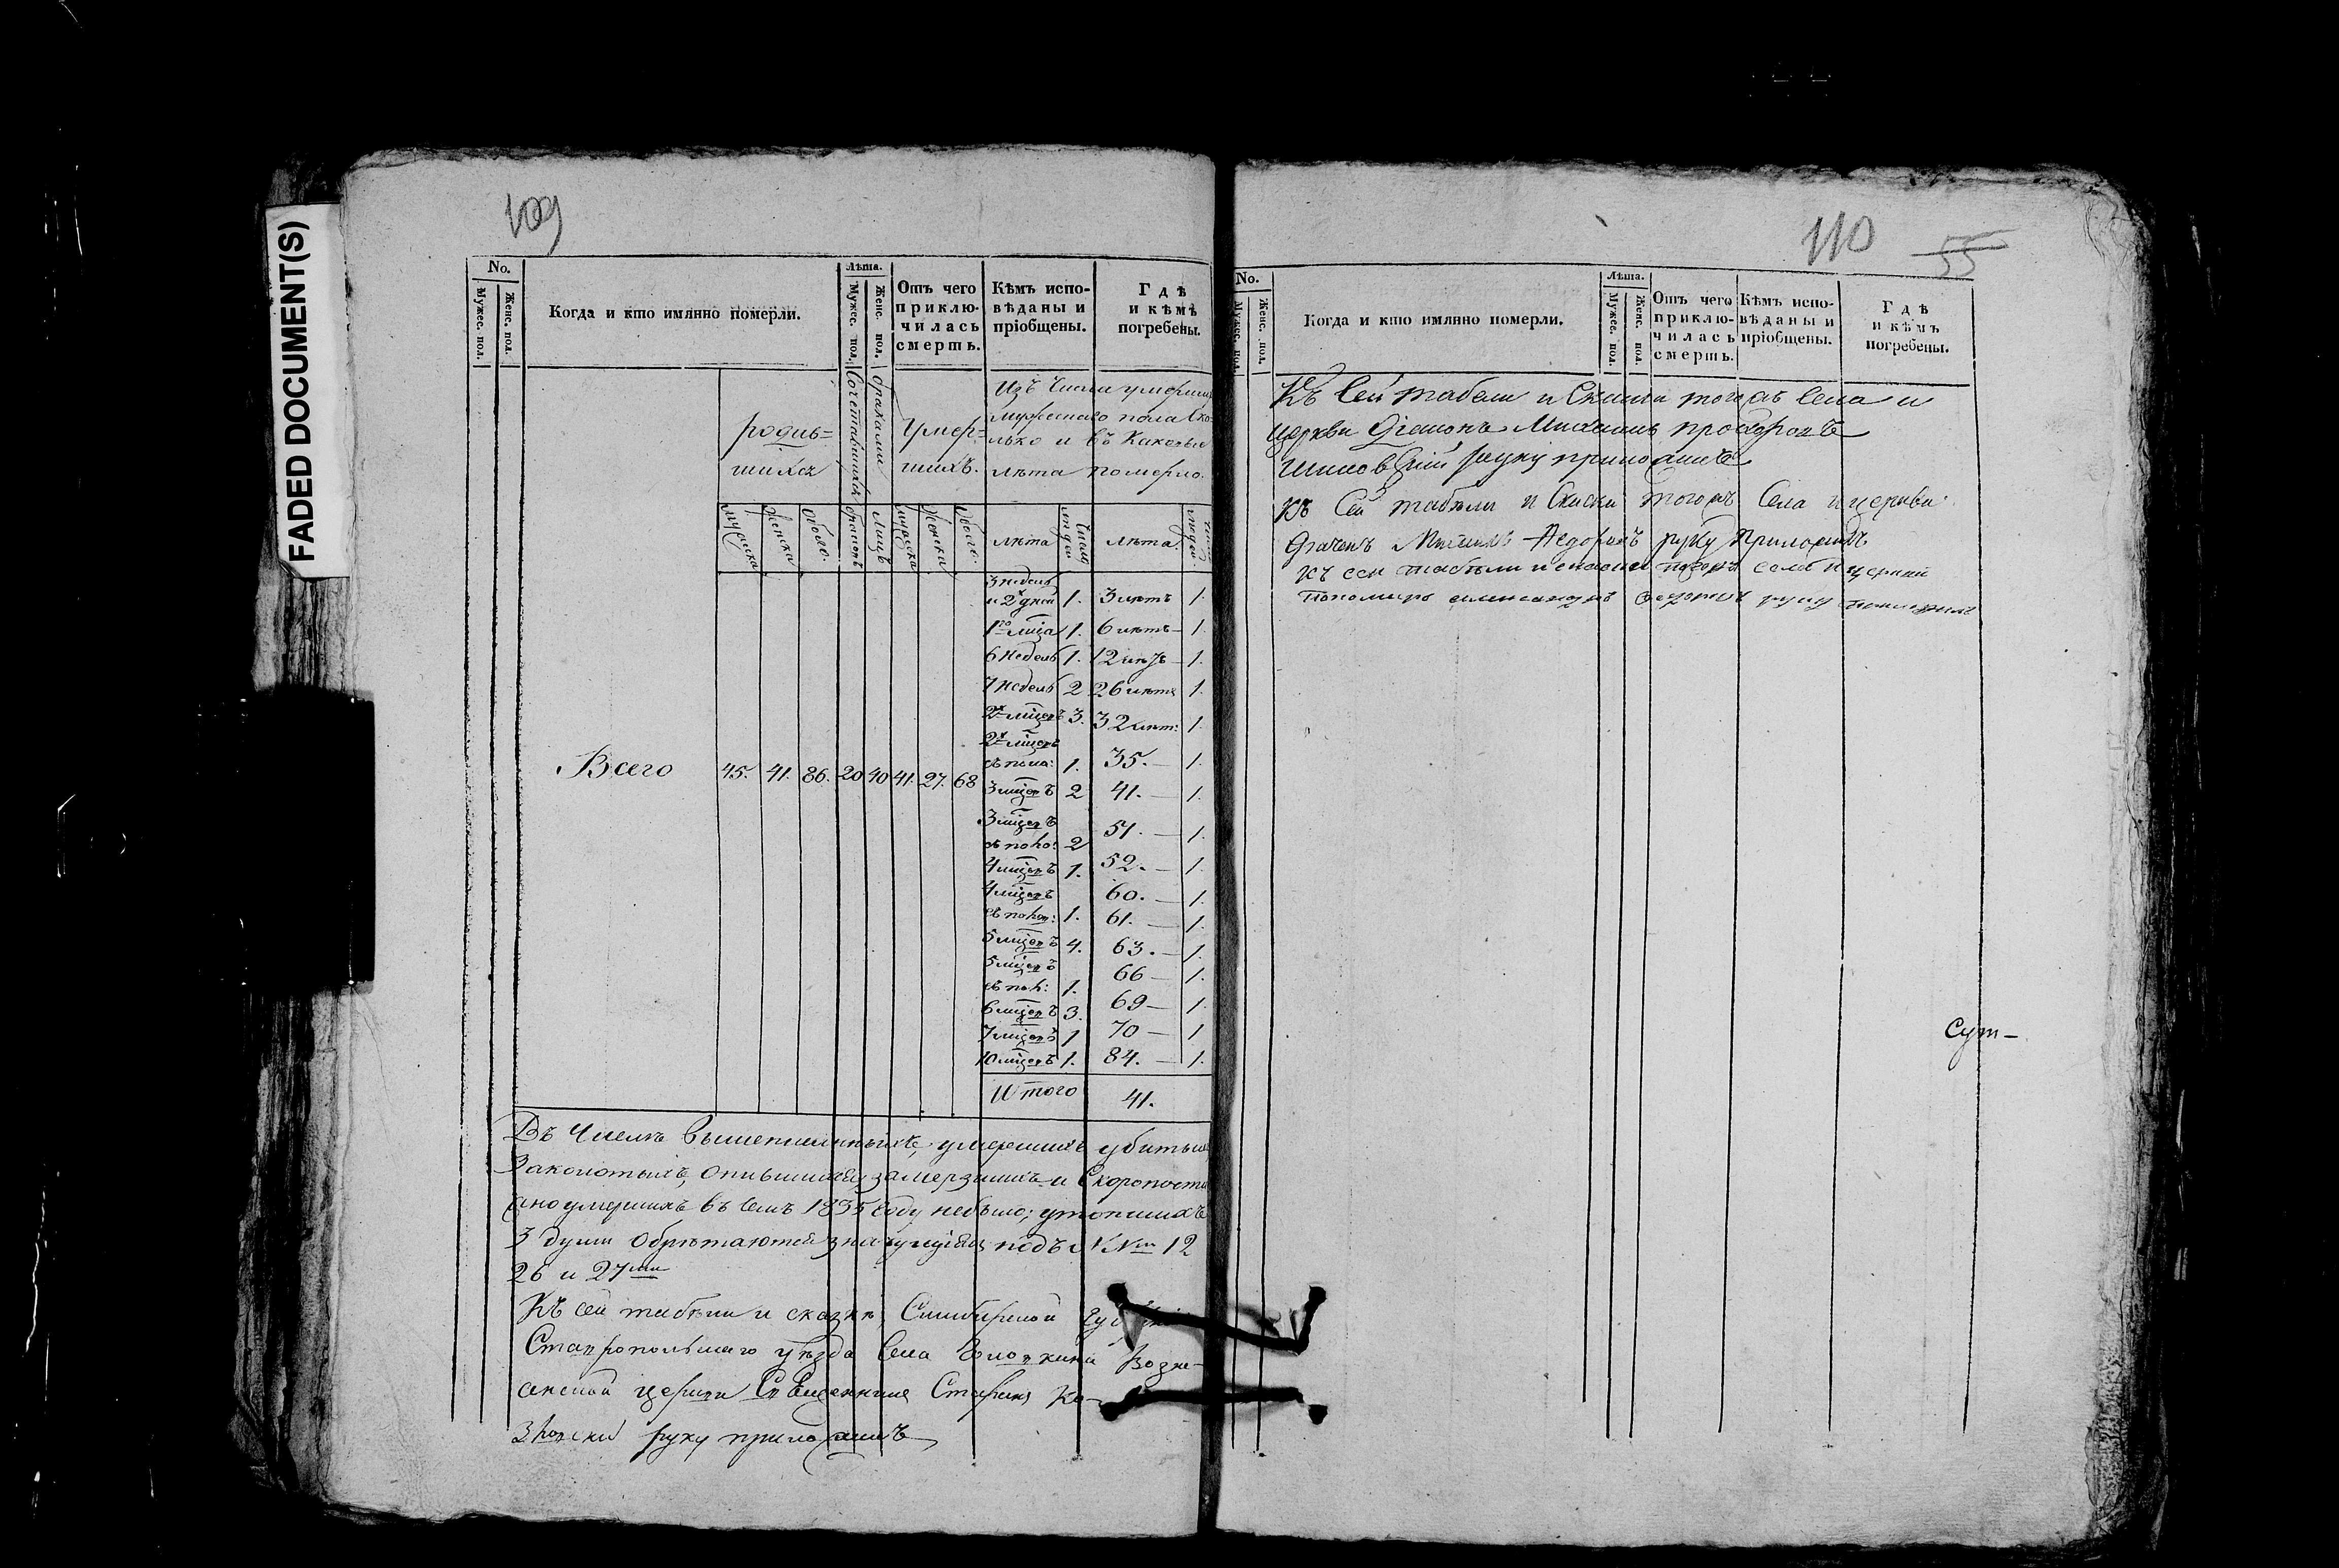 FADED DOCUMENT(S)
109
No.
Мужес. пол.
Женс. пол.
Когда и кто имянно померли.
Лѣта.
Мужес. пол.
Женс. пол.
Отъ чего
приклю-
чилась
смерть.
Кѣмъ испо-
вѣданы и
пріобщены.
Гдѣ
и кѣмъ
погребены.
родив=
шихся
Сочетавшихся
браками
Умер=
шихъ.
Изъ числа умерших
мужескаго пола Ско
лько и въ Каковые
лѣта померло.
мужска
женска
Обоего.
браковъ
лицъ
мужска
женска
Обоего.
лѣта
Число людей
лѣта.
людей
3 недель
и 2х дней 1. 3 лѣтъ 1.
1го мца 1. 6 лѣтъ — 1.
6 недель 1. 12 лѣтъ — 1.
7 недель 2 26 лѣтъ 1.
2х мцовъ 3. 32 лѣт: 1.
2х мцовъ
съ пола: 1. 35. — 1.
3 мцовъ 2 41. — 1.
3 мцовъ
съ поло: 2 51. — 1.
4 мцовъ 1. 52. — 1.
4 мцовъ 60. — 1.
съ пол: 1. 61. — 1.
5 мцовъ 4. 63. — 1.
5 мцовъ 66 — 1.
съ пол: 1. 69 — 1.
6 мцовъ 3.
7 мцовъ 1 70 — 1
10 мцовъ 1. 84. — 1.
Всего 45. 41. 86. 20 40 41. 27. 68
Итого 41.
Въ Числѣ вышеписанныхъ, умершихъ убитых
Заколотыхъ, опившихся, замерзшихъ и Скоропости
жно умершихъ въ семъ 1835 году небыло; утопшихъ
3 души обрѣтаются значущіяся подъ №№ 12
26 и 27ми
Къ сей табели и сказкѣ Симбирской Гу
Ставропольскаго уѣзда Села Возне-
сенской церкви Священникъ Стефанъ Ко-
руку приложилъ
110
55
No.
Мужес. пол.
Женс. пол.
Когда и кто имянно померли.
Лѣта.
Мужес. пол.
Женс. пол.
Отъ чего
приклю-
чилась
смерть.
Кѣмъ испо-
вѣданы и
пріобщены.
Гдѣ
и кѣмъ
погребены.
Къ сей табели и Сказки тогожъ села и
церкви Діаконъ Михаилъ Прохоровъ
руку приложилъ
Къ Сей табели и Скаски тогожъ Села и церкви
Дьячекъ Ѳедоровъ руку Приложилъ
Къ сей табели и скаски тогожъ села и церкви
пономарь Александръ руку приложилъ
Сут—